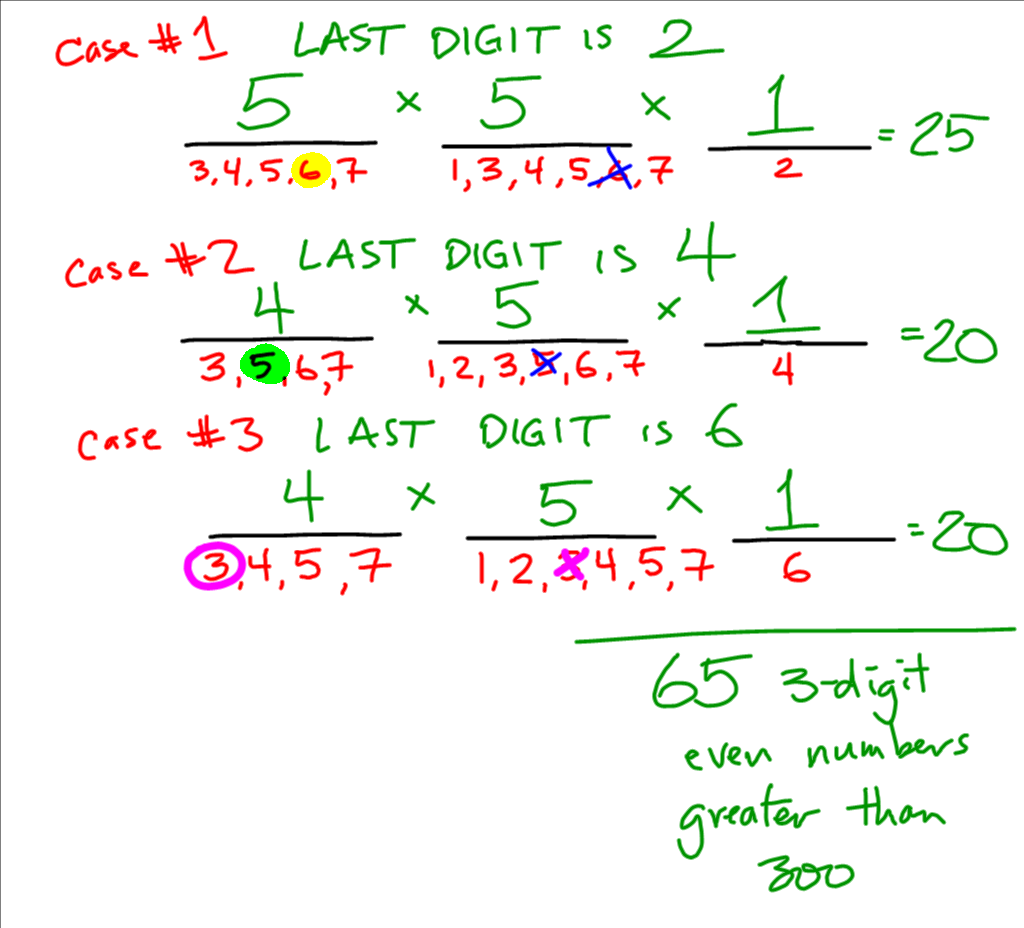 Case #1 LAST DIGIT is 2
5 × 5 × 1 = 25
3,4,5,6,7 1,3,4,5,6,7 2
Case #2 LAST DIGIT is 4
4 × 5 × 1 = 20
3,5,6,7 1,2,3,5,6,7 4
Case #3 LAST DIGIT is 6
4 × 5 × 1 = 20
3,4,5,7 1,2,3,4,5,7 6
65 3-digit
even numbers
greater than
300